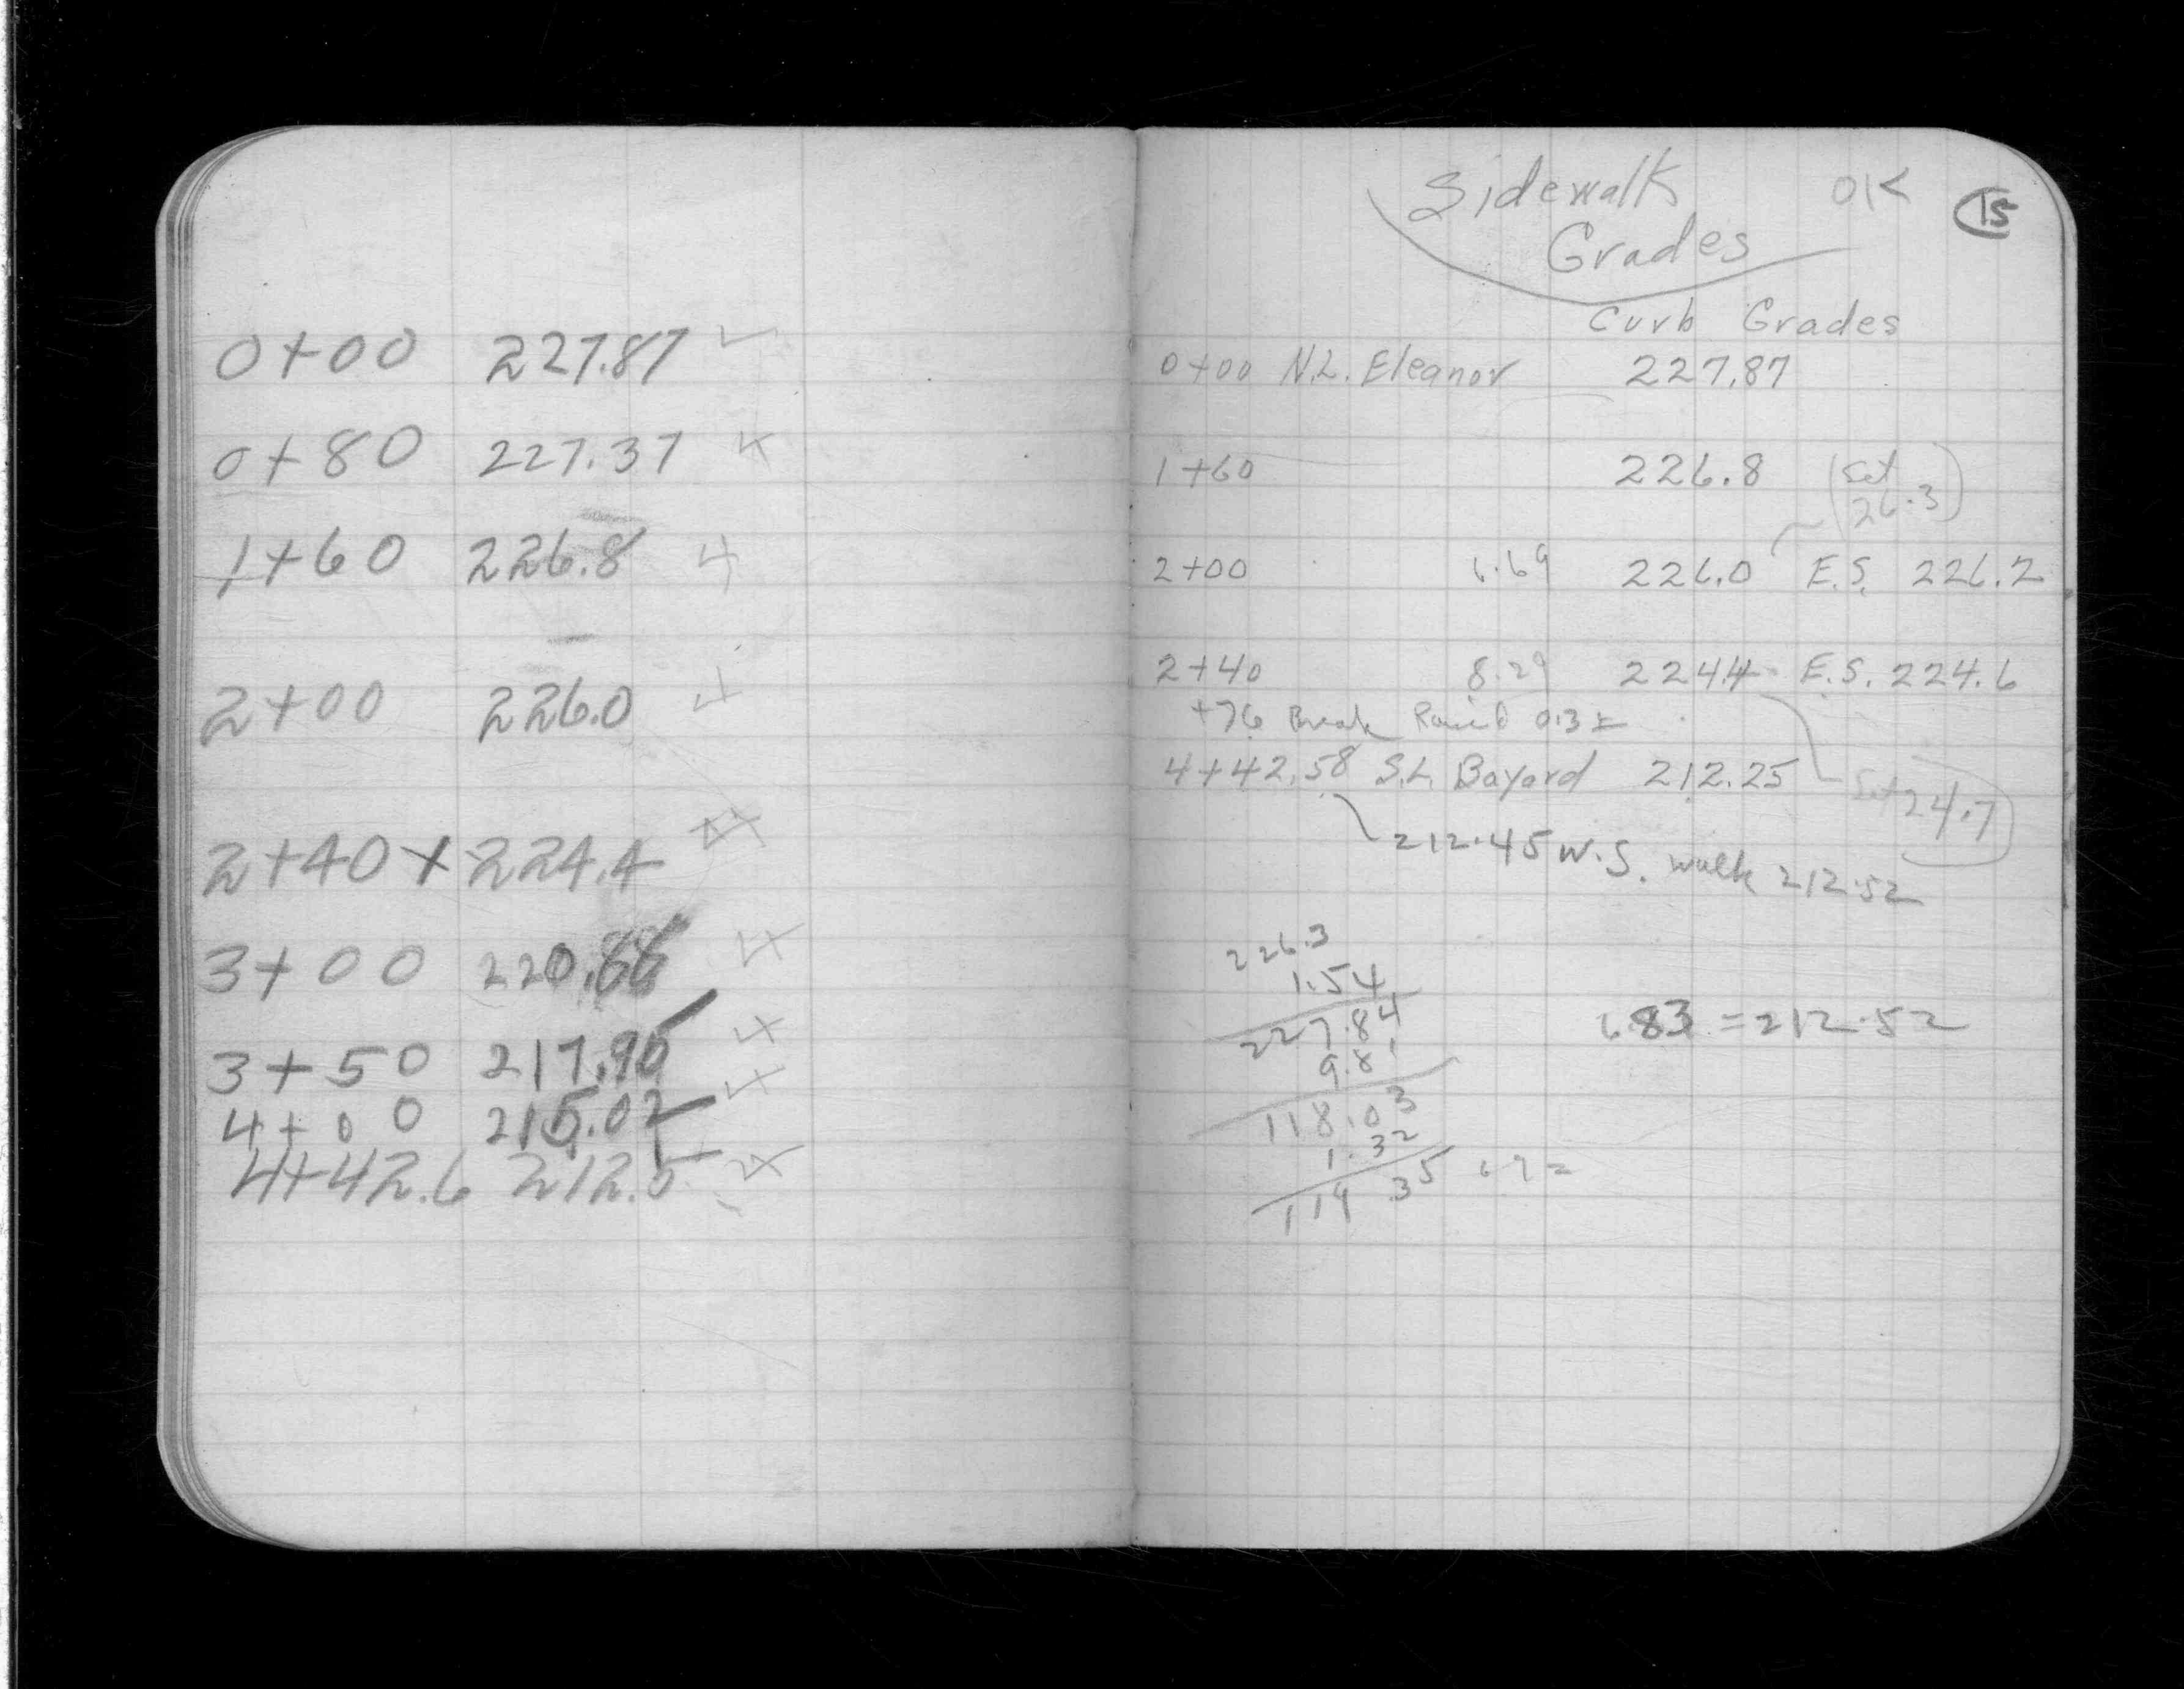 0+00 227.87
0+80 227.37
1+60 226.8
2+00 226.0
2+40 224.4
3+00 220.88
3+50 217.95
4+00 215.02
4+42.6 212.5
Sidewalk OK 15
Grades
Curb Grades
0+00 N.L. Eleanor 227.87
1+60 226.8 (Set
26.3)
2+00 6.69 226.0 E.S. 226.2
2+40 8.29 224.4 E.S. 224.6
+76 Break Round 0.3±
4+42.58 S.L. Bayard 212.25 Set 24.7
212.45 W.S. walk 212.52
226.3
1.54
227.84
9.81
118.03
1.32
119.35 6.9=
6.83 = 212.52